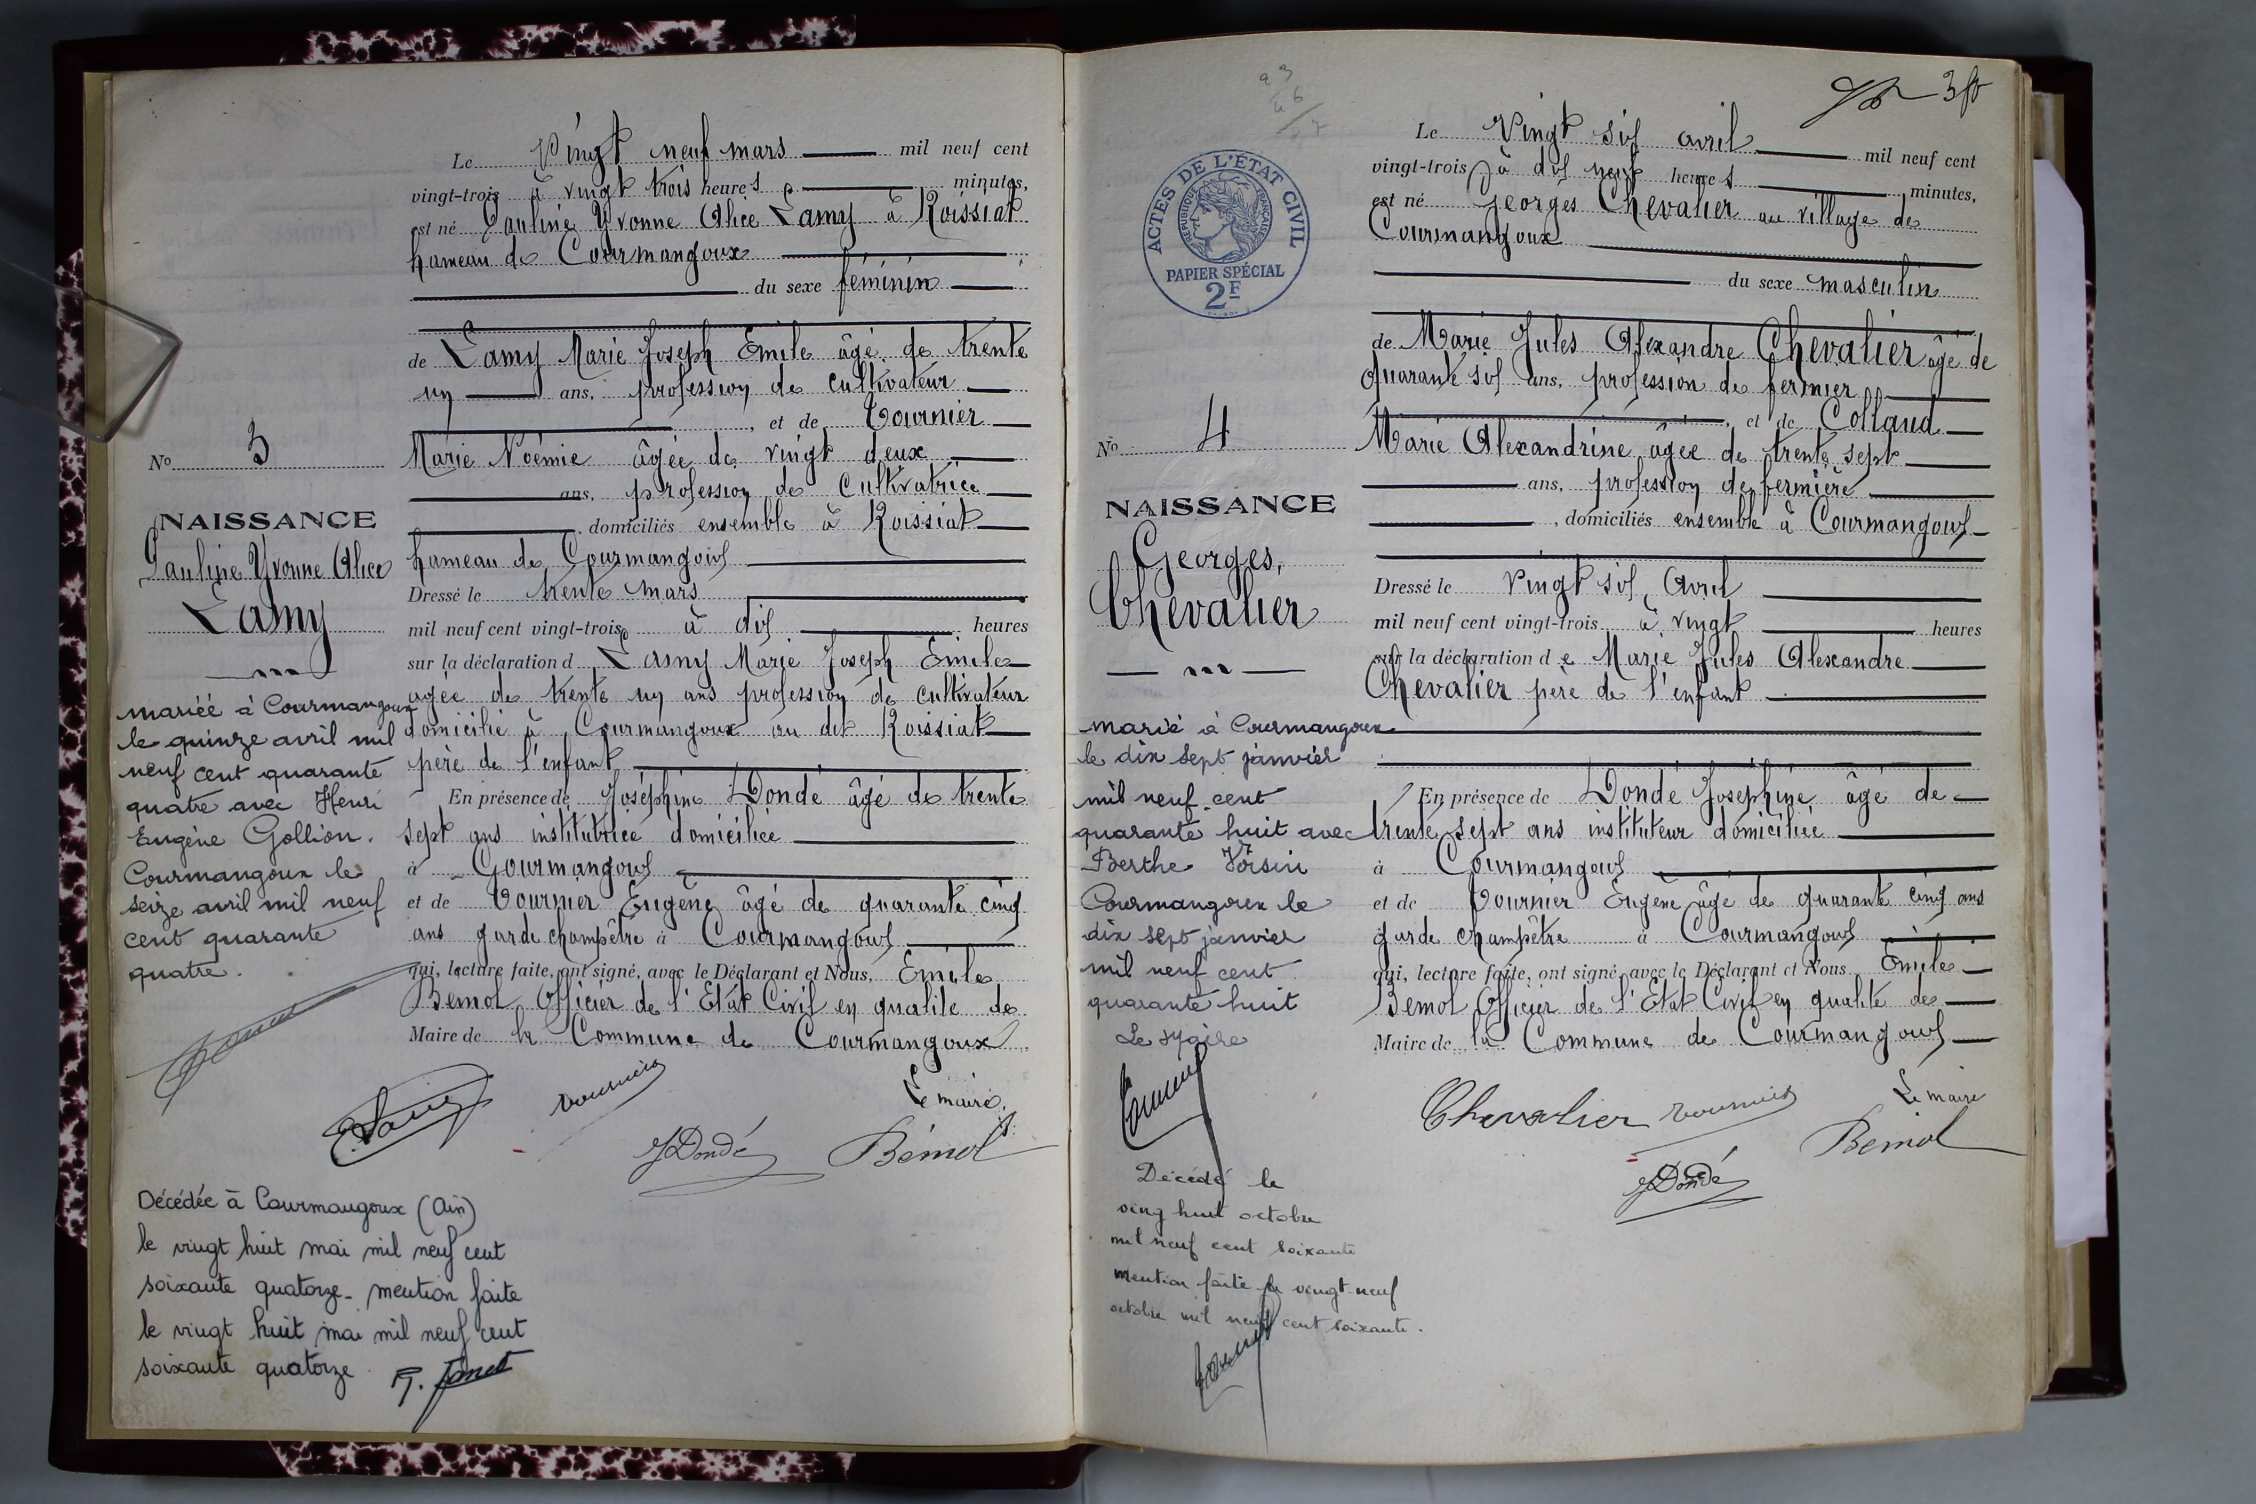 Le Vingt neuf mars mil neuf cent
vingt-trois à vingt trois heures minutes,
est né Pauline Yvonne Alice Lamy à Roissiat
hameau de Courmangoux
du sexe féminin
de Lamy Marie Joseph Emile âgé de trente
un ans, profession de cultivateur
, et de Tournier
Marie Noémie âgée de vingt deux
ans, profession de Cultivatrice
, domiciliés ensemble à Roissiat
hameau de Courmangoux
Dressé le trente mars
mil neuf cent vingt-trois à dix heures
sur la déclaration d Lamy Marie Joseph Emile
agée de trente un ans profession de cultivateur
domicilié à Courmangoux au dit Roissiat
père de l'enfant
En présence de Joséphine Dondé âgé de trente
sept ans institutrice domiciliée
à Courmangoux
et de Tournier Eugène âgé de quarante cinq
ans garde champêtre à Courmangoux
qui, lecture faite, ont signé, avec le Déclarant et Nous, Emile
Bemol Officier de l'Etat Civil en qualité de
Maire de la Commune de Courmangoux
Le maire
E Lamy Tournier
J Dondé Bémol
No 3
NAISSANCE
Pauline Yvonne Alice
Lamy
mariée à Courmangoux
le quinze avril mil
neuf cent quarante
quatre avec Henri
Eugène Gollion.
Courmangoux le
seize avril mil neuf
cent quarante
quatre.
Décédée à Courmangoux (Ain)
le vingt huit mai mil neuf cent
soixante quatorze - mention faite
le vingt huit mai mil neuf cent
soixante quatorze
ACTES DE L'ÉTAT CIVIL
RÉPUBLIQUE FRANÇAISE
PAPIER SPÉCIAL
2F
Le Vingt six avril mil neuf cent
vingt-trois à dix neuf heures minutes,
est né Georges Chevalier au village de
Courmangoux
du sexe masculin
de Marie Jules Alexandre Chevalier âgé de
quarante six ans, profession de fermier
, et de Colland
Marie Alexandrine âgée de trente sept
ans, profession de fermière
, domiciliés ensemble à Courmangoux
Dressé le vingt six Avril
mil neuf cent vingt-trois à vingt heures
sur la déclaration de Marie Jules Alexandre
Chevalier père de l'enfant
En présence de Dondé Joséphine âgé de
trente sept ans instituteur domiciliée
à Courmangoux
et de Tournier Eugène âgé de quarante cinq ans
garde champêtre à Courmangoux
qui, lecture faite, ont signé, avec le Déclarant et Nous Emile
Bemol Officier de l'Etat Civil en qualité de
Maire de la Commune de Courmangoux
Le maire
Chevalier Tournier
J Dondé Bémol
No 4
NAISSANCE
Georges,
Chevalier
marié à Courmangoux
le dix sept janvier
mil neuf cent
quarante huit avec
Berthe Voisin
Courmangoux le
dix sept janvier
mil neuf cent
quarante huit
Le Maire
Décédé le
ving huit octobre
mil neuf cent soixante
mention faite le vingt neuf
octobre mil neuf cent soixante.